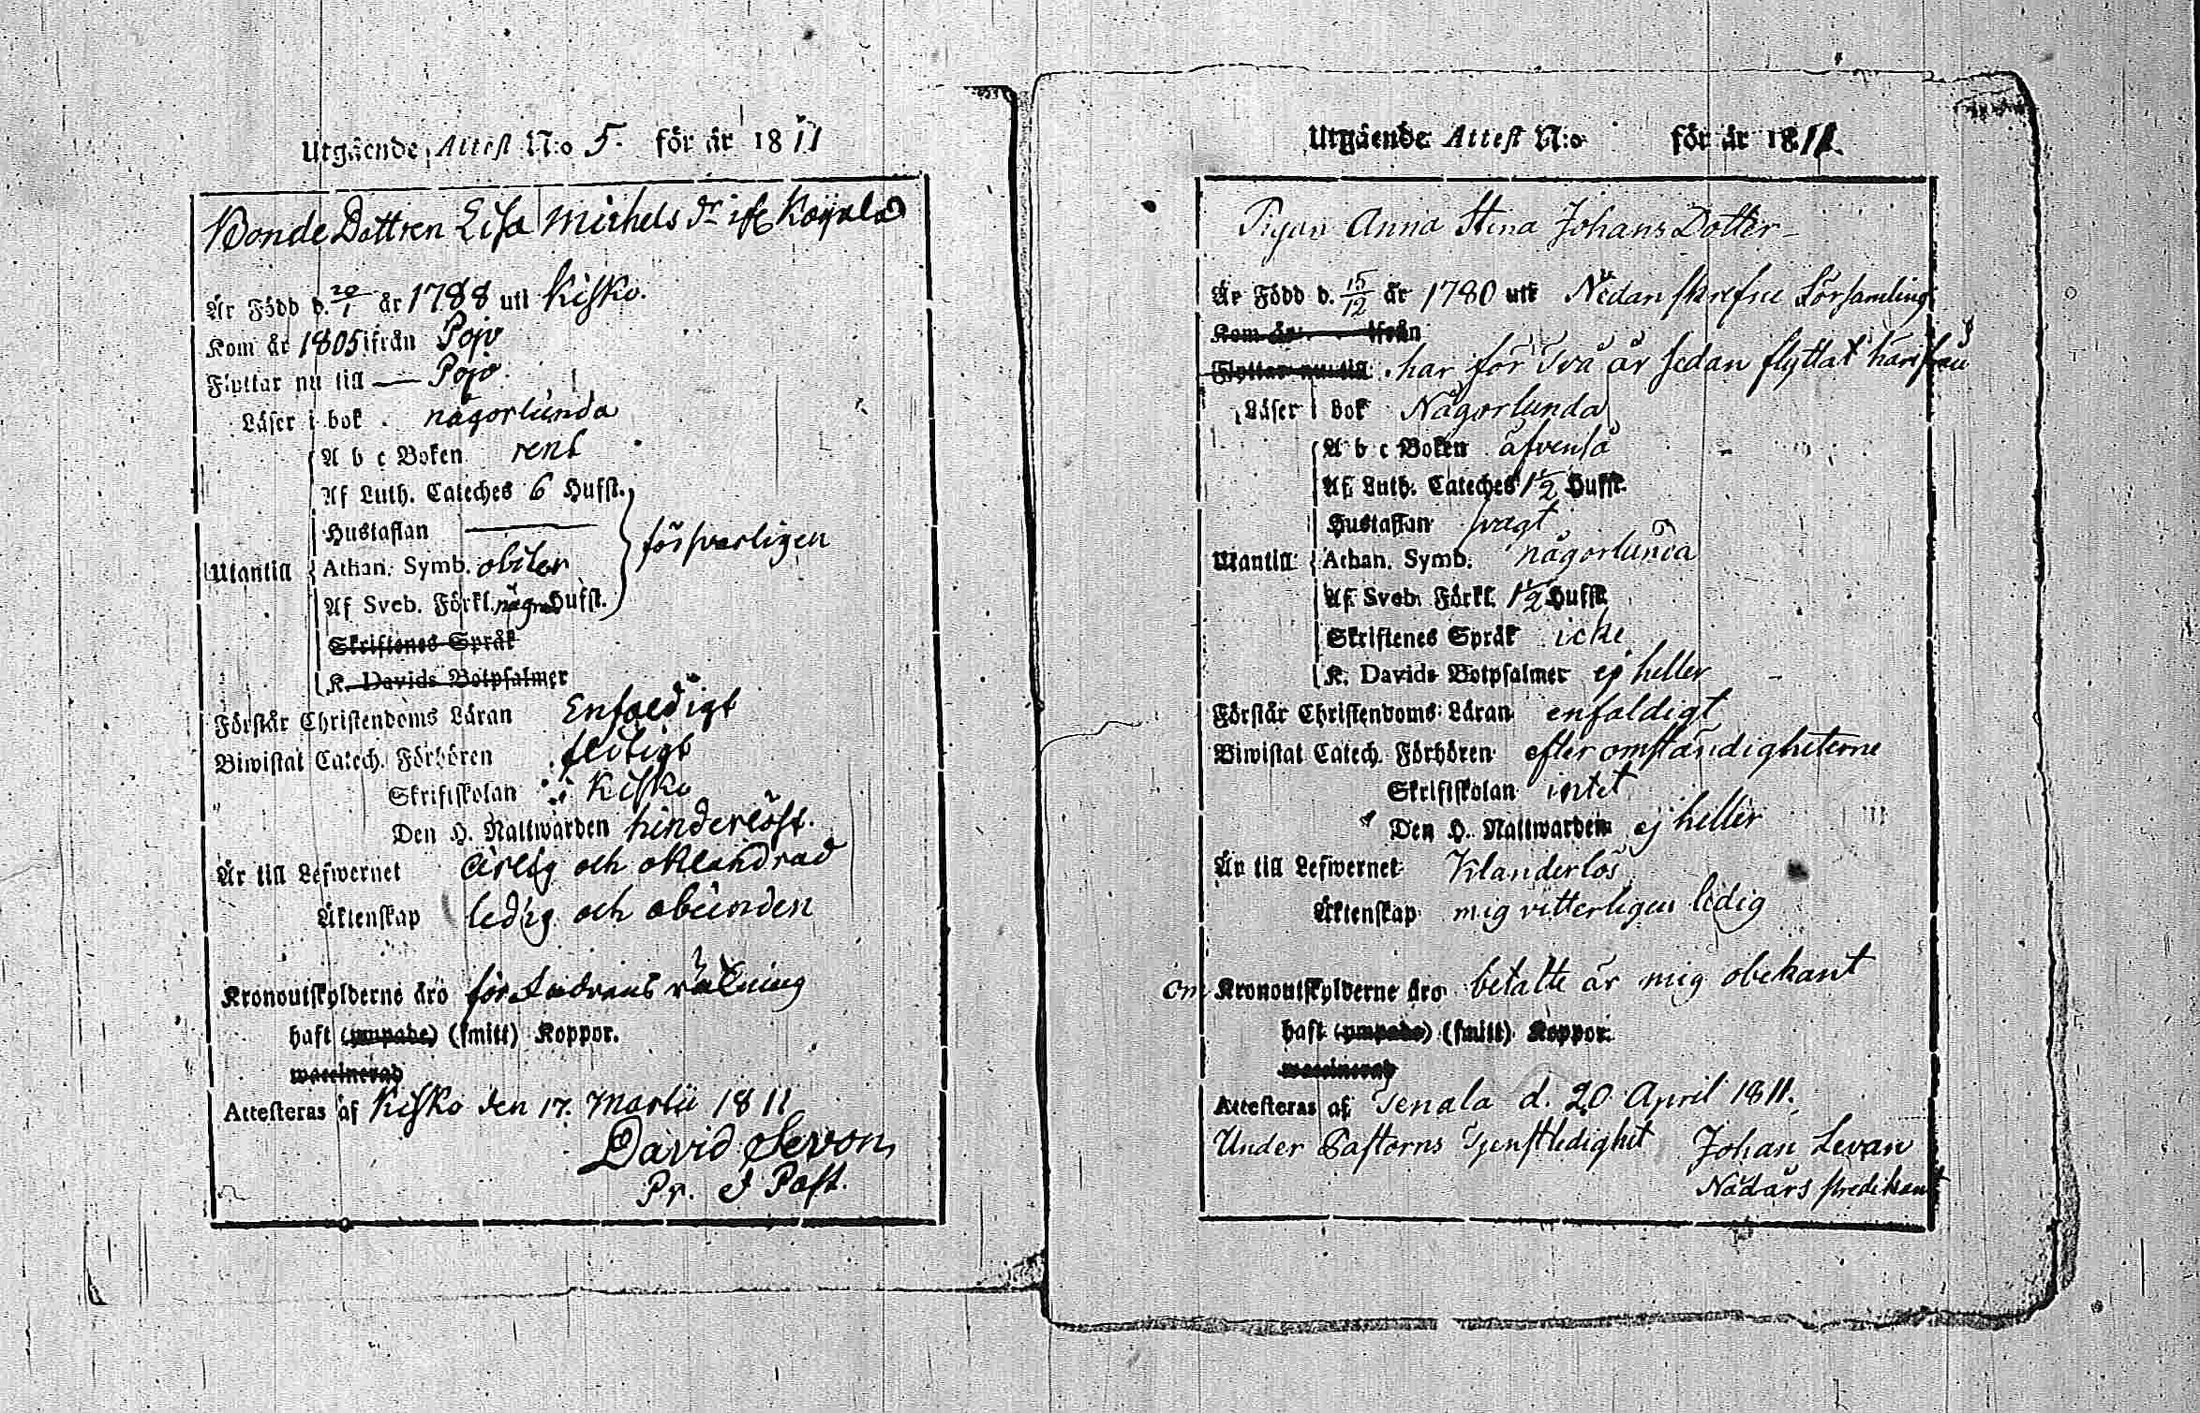 Utgående Attest N:o 5. för år 1811
Bonde Dottren Lisa Michels dr ifr Koyala
Är Född d. 20/1 år 1788 uti Kisko.
Kom år 1805 ifrån Pojo
Flyttar nu till — Pojo.
Läser i bok . någorlunda
A b c Boken rent
Af Luth. Cateches 6 Hufst.
Hustaflan —
försvarligen
Utantill Athan. Symb. obiter
Af Sveb. Förkl. några Hufst.
Skriftenes Språk
K. Davids Botpsalmer
Förstår Christendoms Läran Enfaldigt
Biwistat Catech. Förhören flitigt
Skriftskolan i Kisko
Den H. Nattwarden hinderlöst.
Är till Lefwernet ärlig och oklandrad
Äktenskap ledig och obunden
Kronoutskylderne äro för Fadrens räkning
haft (ympade) (smitt) Koppor.
waccinerad
Attesteras af Kisko den 17. Martii 1811
David Sevon,
Pr. I Past.
Utgående Attest N:o för år 1811.
Pigan Anna Stina Johans Dotter
Är Född d. 15/12 år 1780 uti Nedanskrefne Församling
Kom år ifrån
Flyttar nu till . har för Två år sedan flyttat härifrån
Läser i bok Någorlunda
A b c Boken äfvenså
Af Luth. Cateches 1½ Hufst.
Hustaflan svagt
Utantill Athan. Symb. någorlunda
Af Sveb. Förkl. 1½ Hufst.
Skriftenes Språk icke
K. Davids Botpsalmer ej heller
Förstår Christendoms Läran enfaldigt
Biwistat Catech. Förhören efter omständigheterne
Skriftskolan intet
Den H. Nattwarden ej heller
Är till Lefwernet Klanderlös
Äktenskap mig vitterligen ledig
Om Kronoutskylderne äro betalte är mig obekant
haft (ympade) (smitt) Koppor.
waccinerad
Attesteras af Tenala d. 20 April 1811.
Under Pastorns Tjenstledighet Johan Levan
Nådårs predikant